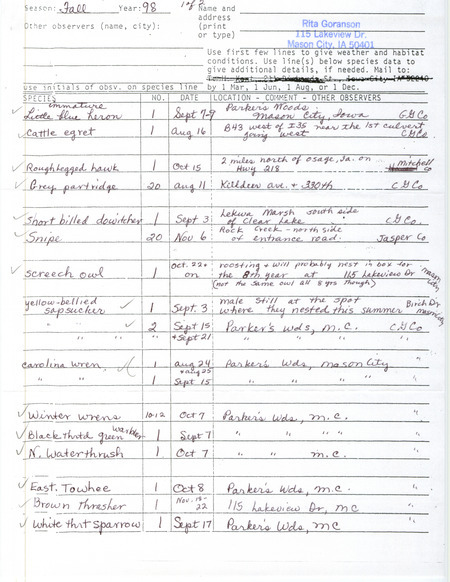 Season: Fall Year: 98 1 of 2 Name and
address
Other observers (name, city): (print
or type)
Rita Goranson
115 Lakeview Dr.
Mason City, IA 50401
Use first few lines to give weather and habitat
conditions. Use line(s) below species data to
give additional details, if needed. Mail to:
use initials of obsv. on species line by 1 Mar, 1 Jun, 1 Aug, or 1 Dec.
SPECIES NO. DATE LOCATION - COMMENT - OTHER OBSERVERS
immature Parker's Woods
Little blue heron 1 Sept 7-9 Mason City, Iowa CG Co
Cattle egret 1 Aug 16 B43 west of I35 near the 1st culvert
going west CG Co
2 miles north of Osage, Ia. on Mitchell
Roughlegged hawk 1 Oct 15 Hwy 218 Co
Grey partridge 20 Aug 11 Killdeer ave. + 330th CG Co
Lekwa Marsh south side
Short billed dowitcher 1 Sept 3 of Clear Lake CG Co.
Rock Creek - north side
Snipe 20 Nov 6 of entrance road. Jasper Co
Oct. 22 roosting + will probably nest in box for
screech owl 1 on the 8th year at 115 Lakeview Dr mason city
(not the same owl all 8 yrs though)
yellow-bellied male still at the spot Birch Dr
sapsucker 1 Sept. 3 where they nested this summer mason city
" " 2 Sept 15 Parker's Wds, M.C. CG Co
" " + Sept 21
carolina wren 1 aug 24 Parker's Wds, Mason City "
+ aug 25
" " 1 Sept 15 " " " "
Winter wrens 10-12 Oct 7 Parker's Wds, M.C. "
Black thrtd green warbler 1 Sept 7 " " " "
N. Waterthrush 1 Oct. 7 " " M.C. "
East. Towhee 1 Oct 8 Parker's Wds, M.C. "
Brown thresher 1 Nov. 18-22 115 Lakeview Dr, MC "
White thrt Sparrow 1 Sept 17 Parker's Wds, MC "